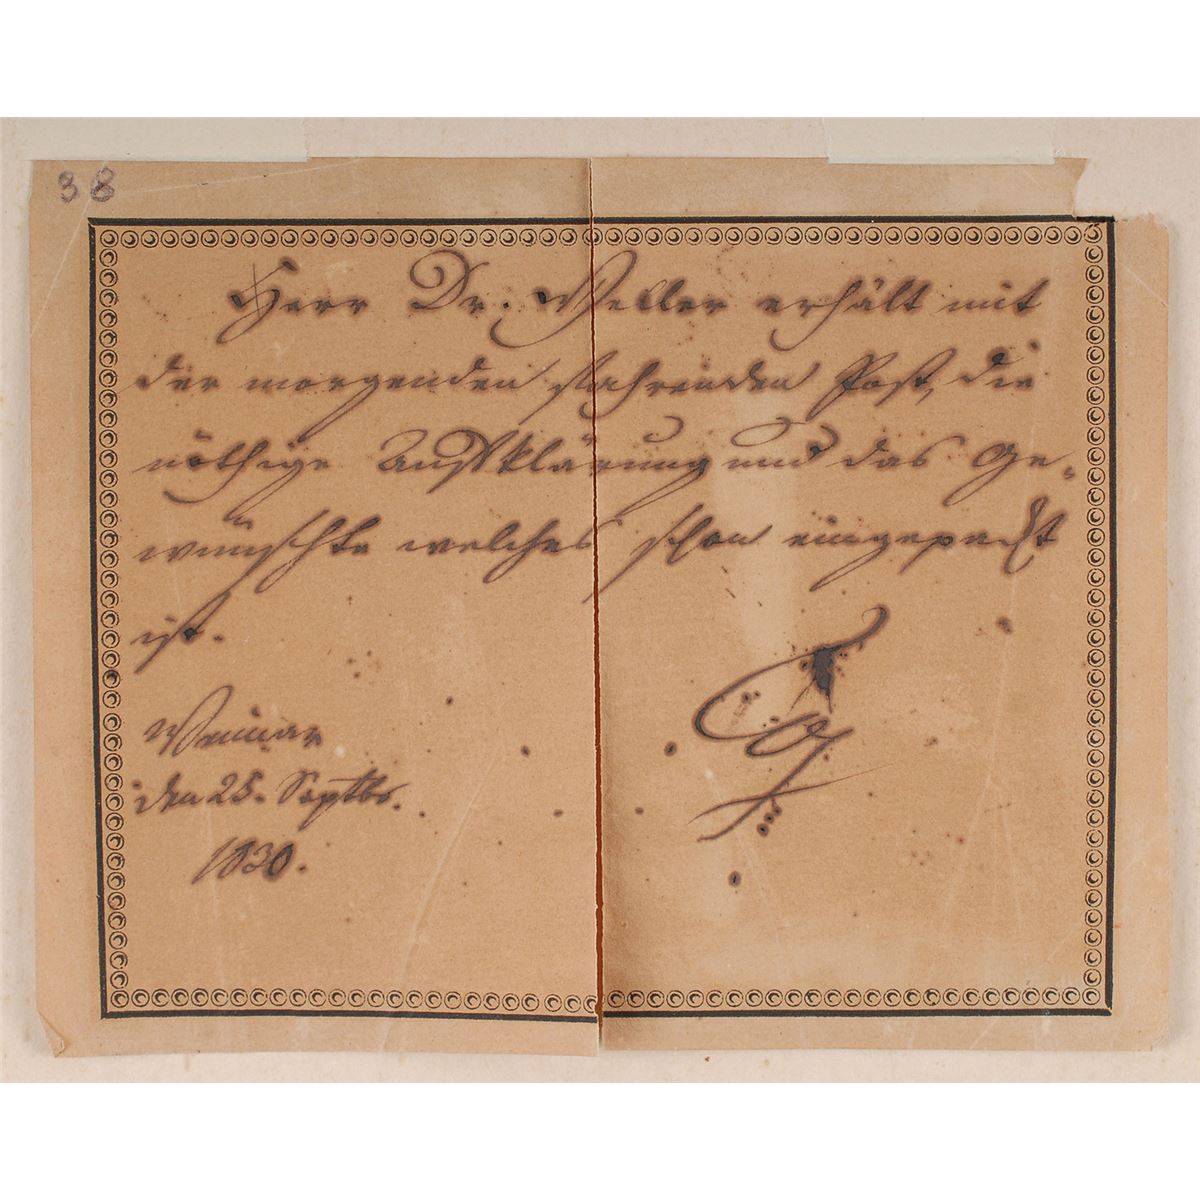 38
Herr Dr. Weller erhält mit
der morgenden fahrenden Post, die
nöthige Aufklärung und das Ge-
wünschte welches schon eingepackt
ist.
Weimar
den 25. Septbr.
1830.
G